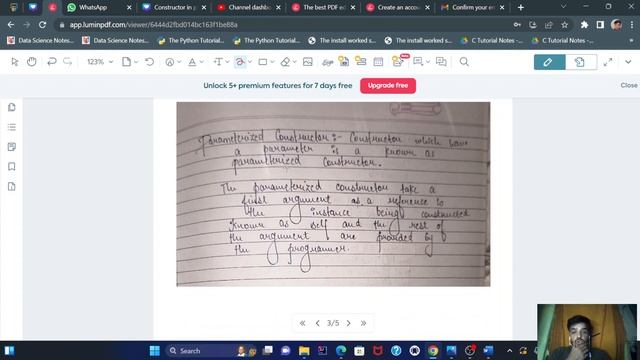 WhatsApp
Constructor in p
Channel dashbo
The best PDF ed
Create an accou
Confirm your em
app.luminpdf.com/viewer/6444d2fbd014bc163f1be88a
Data Science Notes...
Data Science Notes...
The Python Tutorial...
The Python Tutorial...
The install worked s...
The install worked s...
C Tutorial Notes -...
C Tutorial Notes -...
123%
Unlock 5+ premium features for 7 days free
Upgrade free
Parameterized Constructor :- Constructor which have
a parameter is a known as
parameterized constructor.
The parameterized constructor take a
first argument as a reference to
the instance being constructed
known as self and the rest of
the argument are provided by
the programmer.
3/5
Search